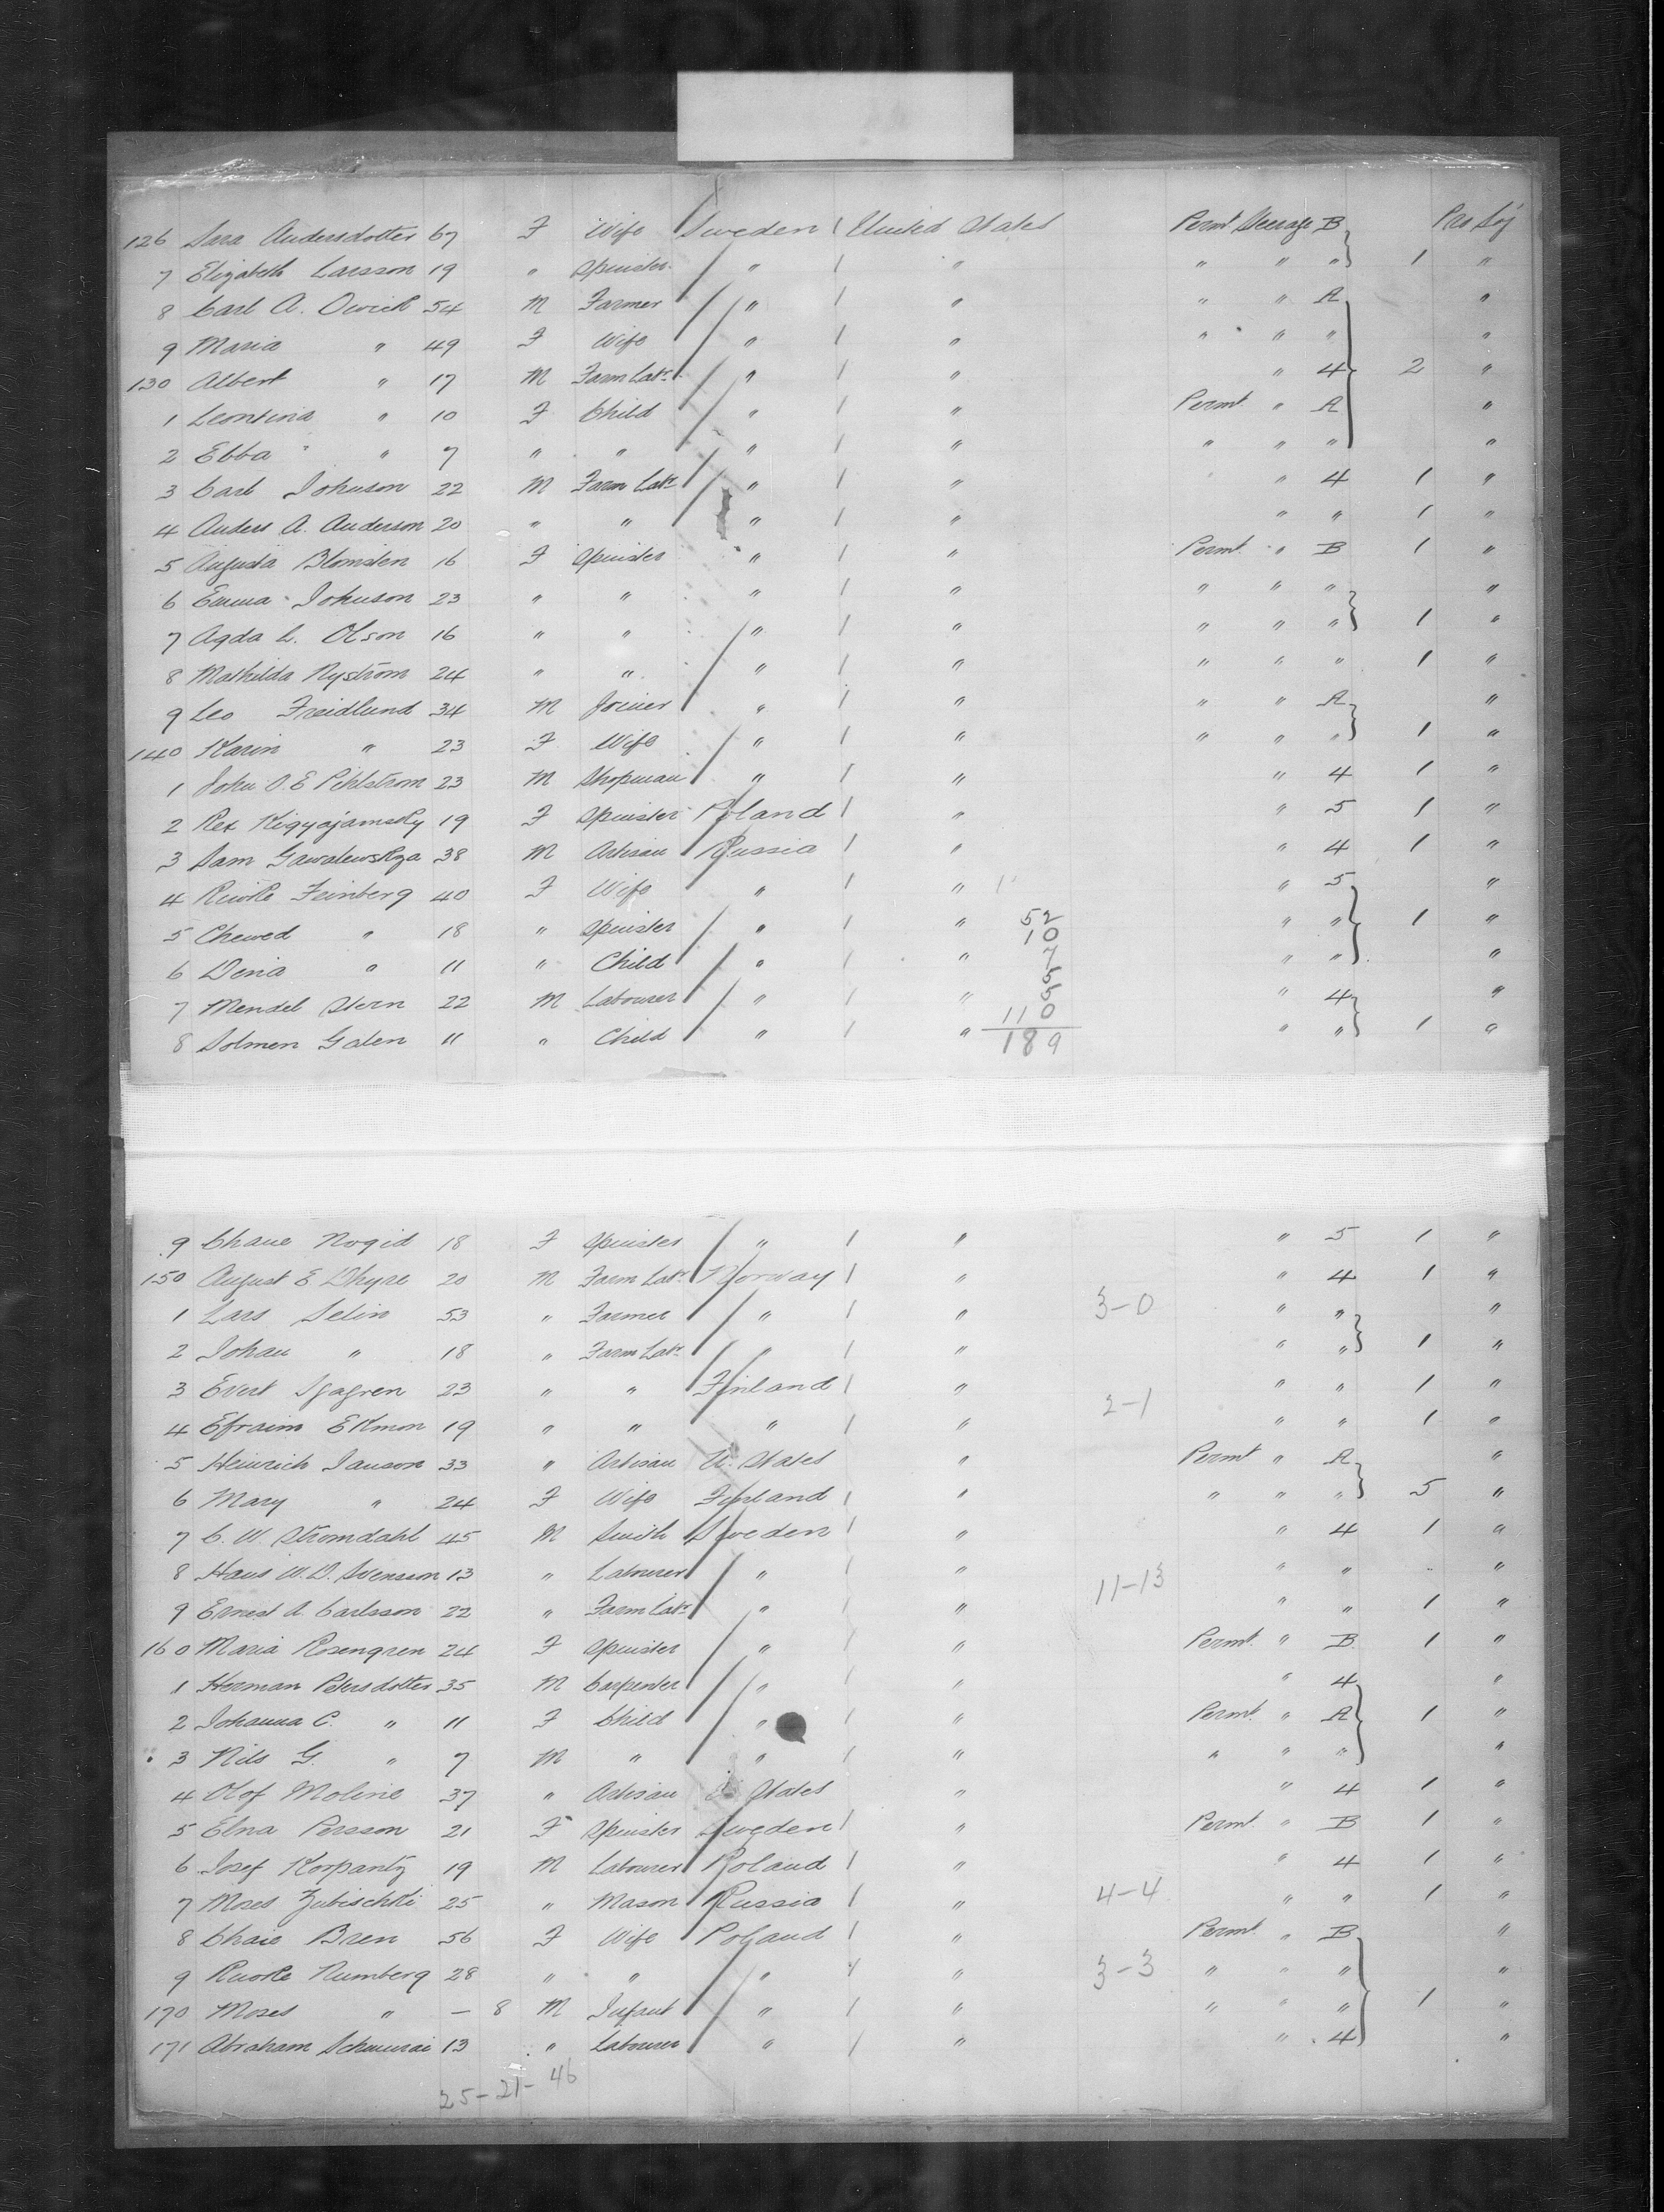 126 Sara Andersdotter 67 F Wife Sweden / United States Permt Steerage B Pro Soj
7 Elizabeth Larsson 19 " Spinster " / " " " " 1 "
8 Carl A. Owick 54 M Farmer " / " " " A "
9 Maria " 49 F Wife " / " " " " "
130 Albert " 17 M Farm Labr " / " " 4 2 "
1 Leontina " 10 F Child " / " Permt. " A "
2 Ebba " 7 " " " / " " " " "
3 Carl Johnson 22 M Farm Labr " / " " 4 1 "
4 Anders A. Anderson 20 " " " / " " " 1 "
5 Augusta Blomsten 16 F Spinster " / " Permt. " B 1 "
6 Emma Johnson 23 " " " / " " " " "
7 Agda L. Olson 16 " " " / " " " " 1 "
8 Mathilda Nyström 24 " " " / " " " " 1 "
9 Leo Freidlund 34 M Joiner " / " " " A "
140 Karin " 23 F Wife " / " " " " 1 "
1 John O. E Pihlstrom 23 M Shopman " / " " 4 1 "
2 Rex 19 F Spinster Poland / " " 5 1 "
3 Sam Gawalewskza 38 M Artisan Russia / " " 4 1 "
4 Feinberg 40 F Wife " / " " 5 "
5 Chewed " 18 " Spinster " / " 52 " " 1 "
10
6 Dina " 11 " Child " / " 7 " " "
5
7 Mendel Stern 22 M Labourer " / " 5 " 4 "
110
8 Solmen Galen 11 " Child " / " 189 " " 1 "
9 Chaue Nogid 18 F Spinster " / " " 5 1 "
150 August E Dhyre 20 M Farm Labr Norway / " " 4 1 "
1 Lars Selin 53 " Farmer " / " 3-0 " " "
2 Johan " 18 " Farm Labr " / " " " 1 "
3 Evert Sjagren 23 " " Finland / " " " 1 "
4 Efraim Ekmon 19 " " " / " 2-1 " " 1 "
5 Heinrich Janson 33 " Artisan U. States " Permt " A "
6 Mary " 24 F Wife Finland / " " " " 5 "
7 C. W. Stromdahl 45 M Smith Sweden / " " 4 1 "
8 Hans W. D. Svenson 13 " Labourer " / " 11-13 " " " "
9 Ernest A. Carlsson 22 " Farm Labr " / " " " 1 "
160 Maria Rosengren 24 F Spinster " / " Permt. " B 1 "
1 Herman Petersdotter 35 M Carpenter " / " " 4 "
2 Johanna C. " 11 F Child " / " Permt. " A 1 "
3 Nils G. " 7 M " " / " " " " "
4 Olof Moline 37 " Artisan U. States " " 4 1 "
5 Elna Persson 21 F Spinster Sweden / " Permt. " B 1 "
6 Josef Korpanty 19 M Labourer Poland / " " 4 1 "
7 Moses Zubischki 25 " Mason Russia / " 4-4 " " 1 "
8 Chaie Bren 56 F Wife Poland / " Permt. " B "
9 Numberg 28 " " " / " 3-3 " " " "
170 Moses " — 8 M Infant " / " " " " 1 "
171 Abraham 13 " Labourer " / " " 4 "
25-21-46